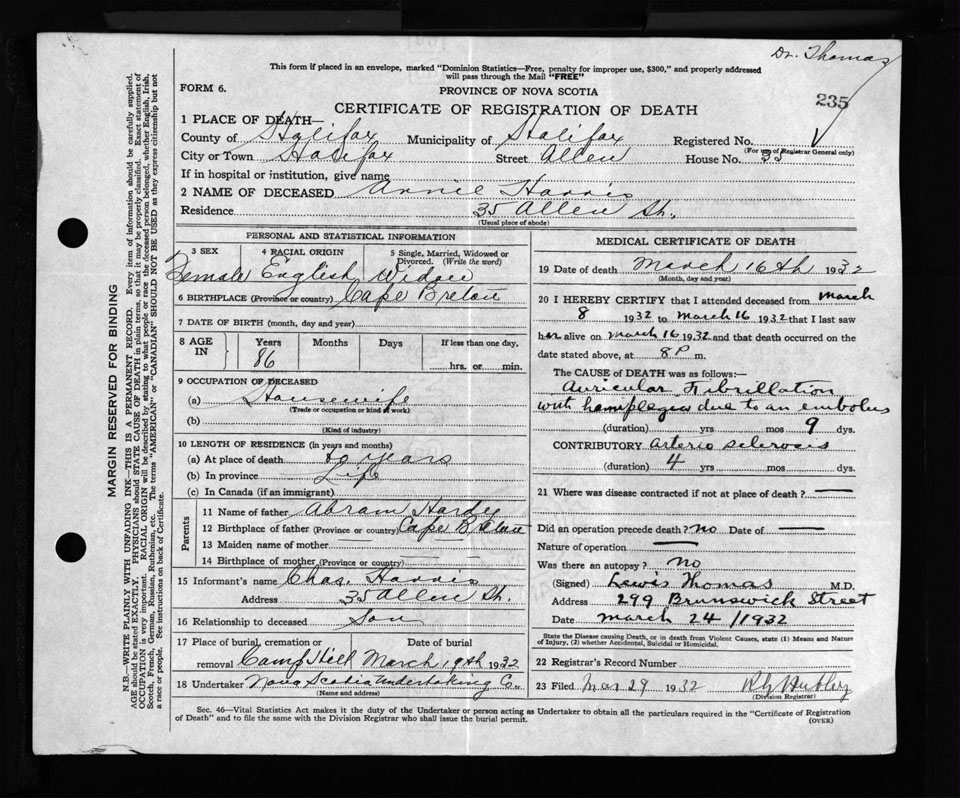 Dr. Thomas
This form if placed in an envelope, marked "Dominion Statistics—Free, penalty for improper use, $300," and properly addressed
will pass through the Mail "FREE"
FORM 6.
PROVINCE OF NOVA SCOTIA
235
CERTIFICATE OF REGISTRATION OF DEATH
1 PLACE OF DEATH—
County of Halifax Municipality of Halifax Registered No.
(For use of Registrar General only)
City or Town Halifax Street Allen House No. 35
If in hospital or institution, give name
2 NAME OF DECEASED Annie Harris
Residence 35 Allen St.
(Usual place of abode)
PERSONAL AND STATISTICAL INFORMATION
3 SEX 4 RACIAL ORIGIN 5 Single, Married, Widowed or
Divorced. (Write the word)
Female English Widow
6 BIRTHPLACE (Province or country) Cape Breton
7 DATE OF BIRTH (month, day and year)
8 AGE IN Years Months Days If less than one day,
86 hrs. or min.
9 OCCUPATION OF DECEASED
(a) Housewife
(Trade or occupation or kind of work)
(b)
(Kind of industry)
10 LENGTH OF RESIDENCE (in years and months)
(a) At place of death years
(b) In province Life
(c) In Canada (if an immigrant)
Parents
11 Name of father Abram Hardy
12 Birthplace of father (Province or country) Cape Breton
13 Maiden name of mother
14 Birthplace of mother (Province or country)
15 Informant's name Chas. Harris
Address 35 Allen St.
16 Relationship to deceased Son
17 Place of burial, cremation or Date of burial
removal Camp Hill March 19th 1932
18 Undertaker Nova Scotia Undertaking Co.
(Name and address)
MEDICAL CERTIFICATE OF DEATH
19 Date of death March 16th 1932
(Month, day and year)
20 I HEREBY CERTIFY that I attended deceased from March
8 1932 to March 16 1932 that I last saw
her alive on March 16 1932 and that death occurred on the
date stated above, at 8 P m.
The CAUSE OF DEATH was as follows:—
Auricular Fibrillation
with hemiplegia due to an embolus
(duration) yrs mos 9 dys.
CONTRIBUTORY Arterio sclerosis
(duration) 4 yrs mos dys.
21 Where was disease contracted if not at place of death? —
Did an operation precede death? No Date of —
Nature of operation —
Was there an autopsy? No
(Signed) Lewis Thomas M.D.
Address 299 Brunswick Street
Date March 24/1932
State the Disease causing Death, or in death from Violent Causes, state (1) Means and Nature
of Injury, (2) whether Accidental, Suicidal or Homicidal.
22 Registrar's Record Number
23 Filed Mar 29 1932
(Division Registrar)
Sec. 46—Vital Statistics Act makes it the duty of the Undertaker or person acting as Undertaker to obtain all the particulars required in the "Certificate of Registration
of Death" and to file the same with the Division Registrar who shall issue the burial permit.
(OVER)
MARGIN RESERVED FOR BINDING
N.B.—WRITE PLAINLY WITH UNFADING INK—THIS IS A PERMANENT RECORD. Every item of information should be carefully supplied.
AGE should be stated EXACTLY. PHYSICIANS should STATE CAUSE OF DEATH in plain terms, so that it may be properly classified. Exact statement of
OCCUPATION is very important. RACIAL ORIGIN will be described by stating to what people or race the deceased person belonged, whether English, Irish,
Scotch, French, German, Russian, Ruthenian, etc. The terms "AMERICAN" or "CANADIAN" SHOULD NOT BE USED as they express citizenship but not
a race or people. See instructions on back of Certificate.